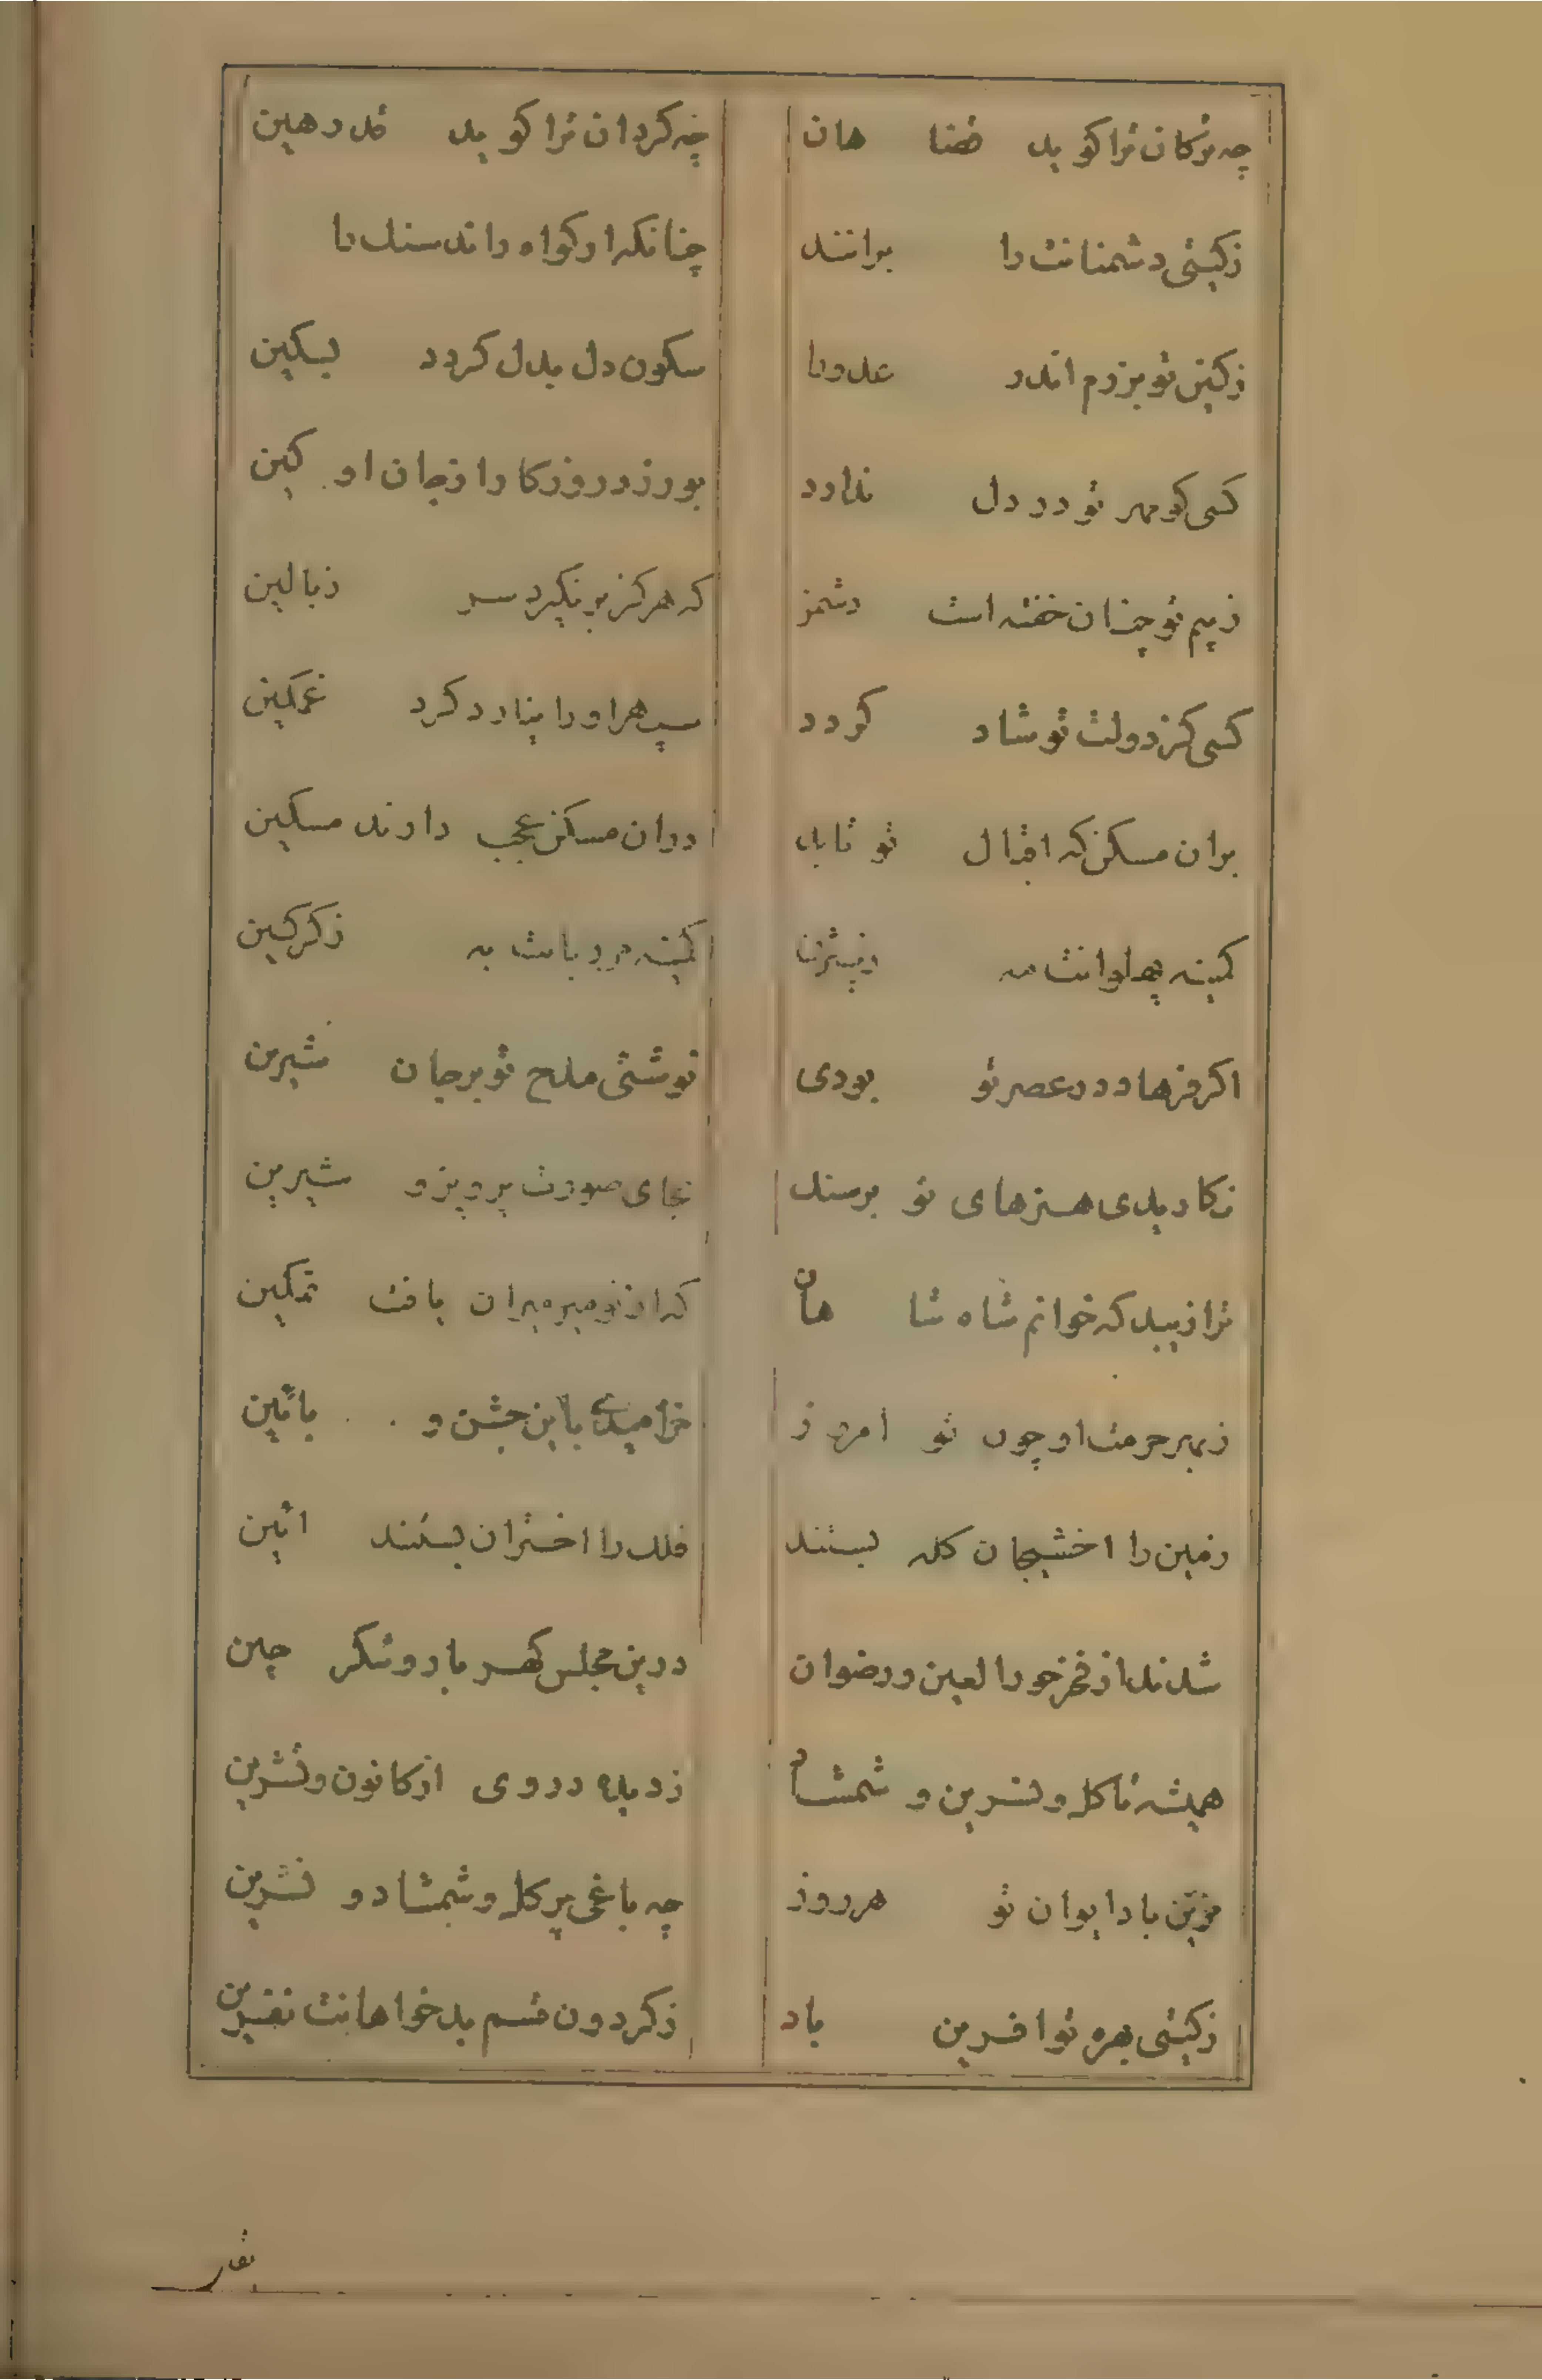 چه ترکان ترا کوید قضا هان چه کردان ترا کوید قدر هین
ز کیتی دشمنانت را برانند چنانکه از کواه راند سنک را
ز کین تو برزم اندر عدو را سکون دل بدل کردد بسکین
کسی کو مهر تو در دل ندارد بورزد روزکار از جان او کین
ز بیم تو چنان خفته است دشمن که هرکز بر نکیرد سر ز بالین
کسی کز دولت تو شاد کردد سپهر او را نیارد کرد غمکین
بران مسکن که اقبال تو تابد دران مسکن عجب دارند مسکین
کمینه پهلوانت مه ز بیژن کمینه مرزبانت به ز کرکین
اکر فرهاد در عصر تو بودی نوشتی مدح تو بر جان شیرین
نکاریدی هنرهای تو بر سنک بجای صورت پرویز و شیرین
ترا زیبد که خوانم شاه شاهان که از تو میر میران یافت تمکین
ز بهر حرمت او چون تو امروز خرامیدی باین جشن و باین
زمین را اخشیجان کله بستند فلک را اختران بستند ائین
شدند از فخر حورالعین و رضوان درین مجلس کهر بار و شکر چین
همیشه تا کل و نسرین و شمشاد ز دیده در وی از کانون و تشرین
مزین باد ایوان تو هر روز چه باغی پر کل و شمشاد و نسرین
ز کیتی بهره تو افرین باد ز کردون قسم بدخواهانت نفرین